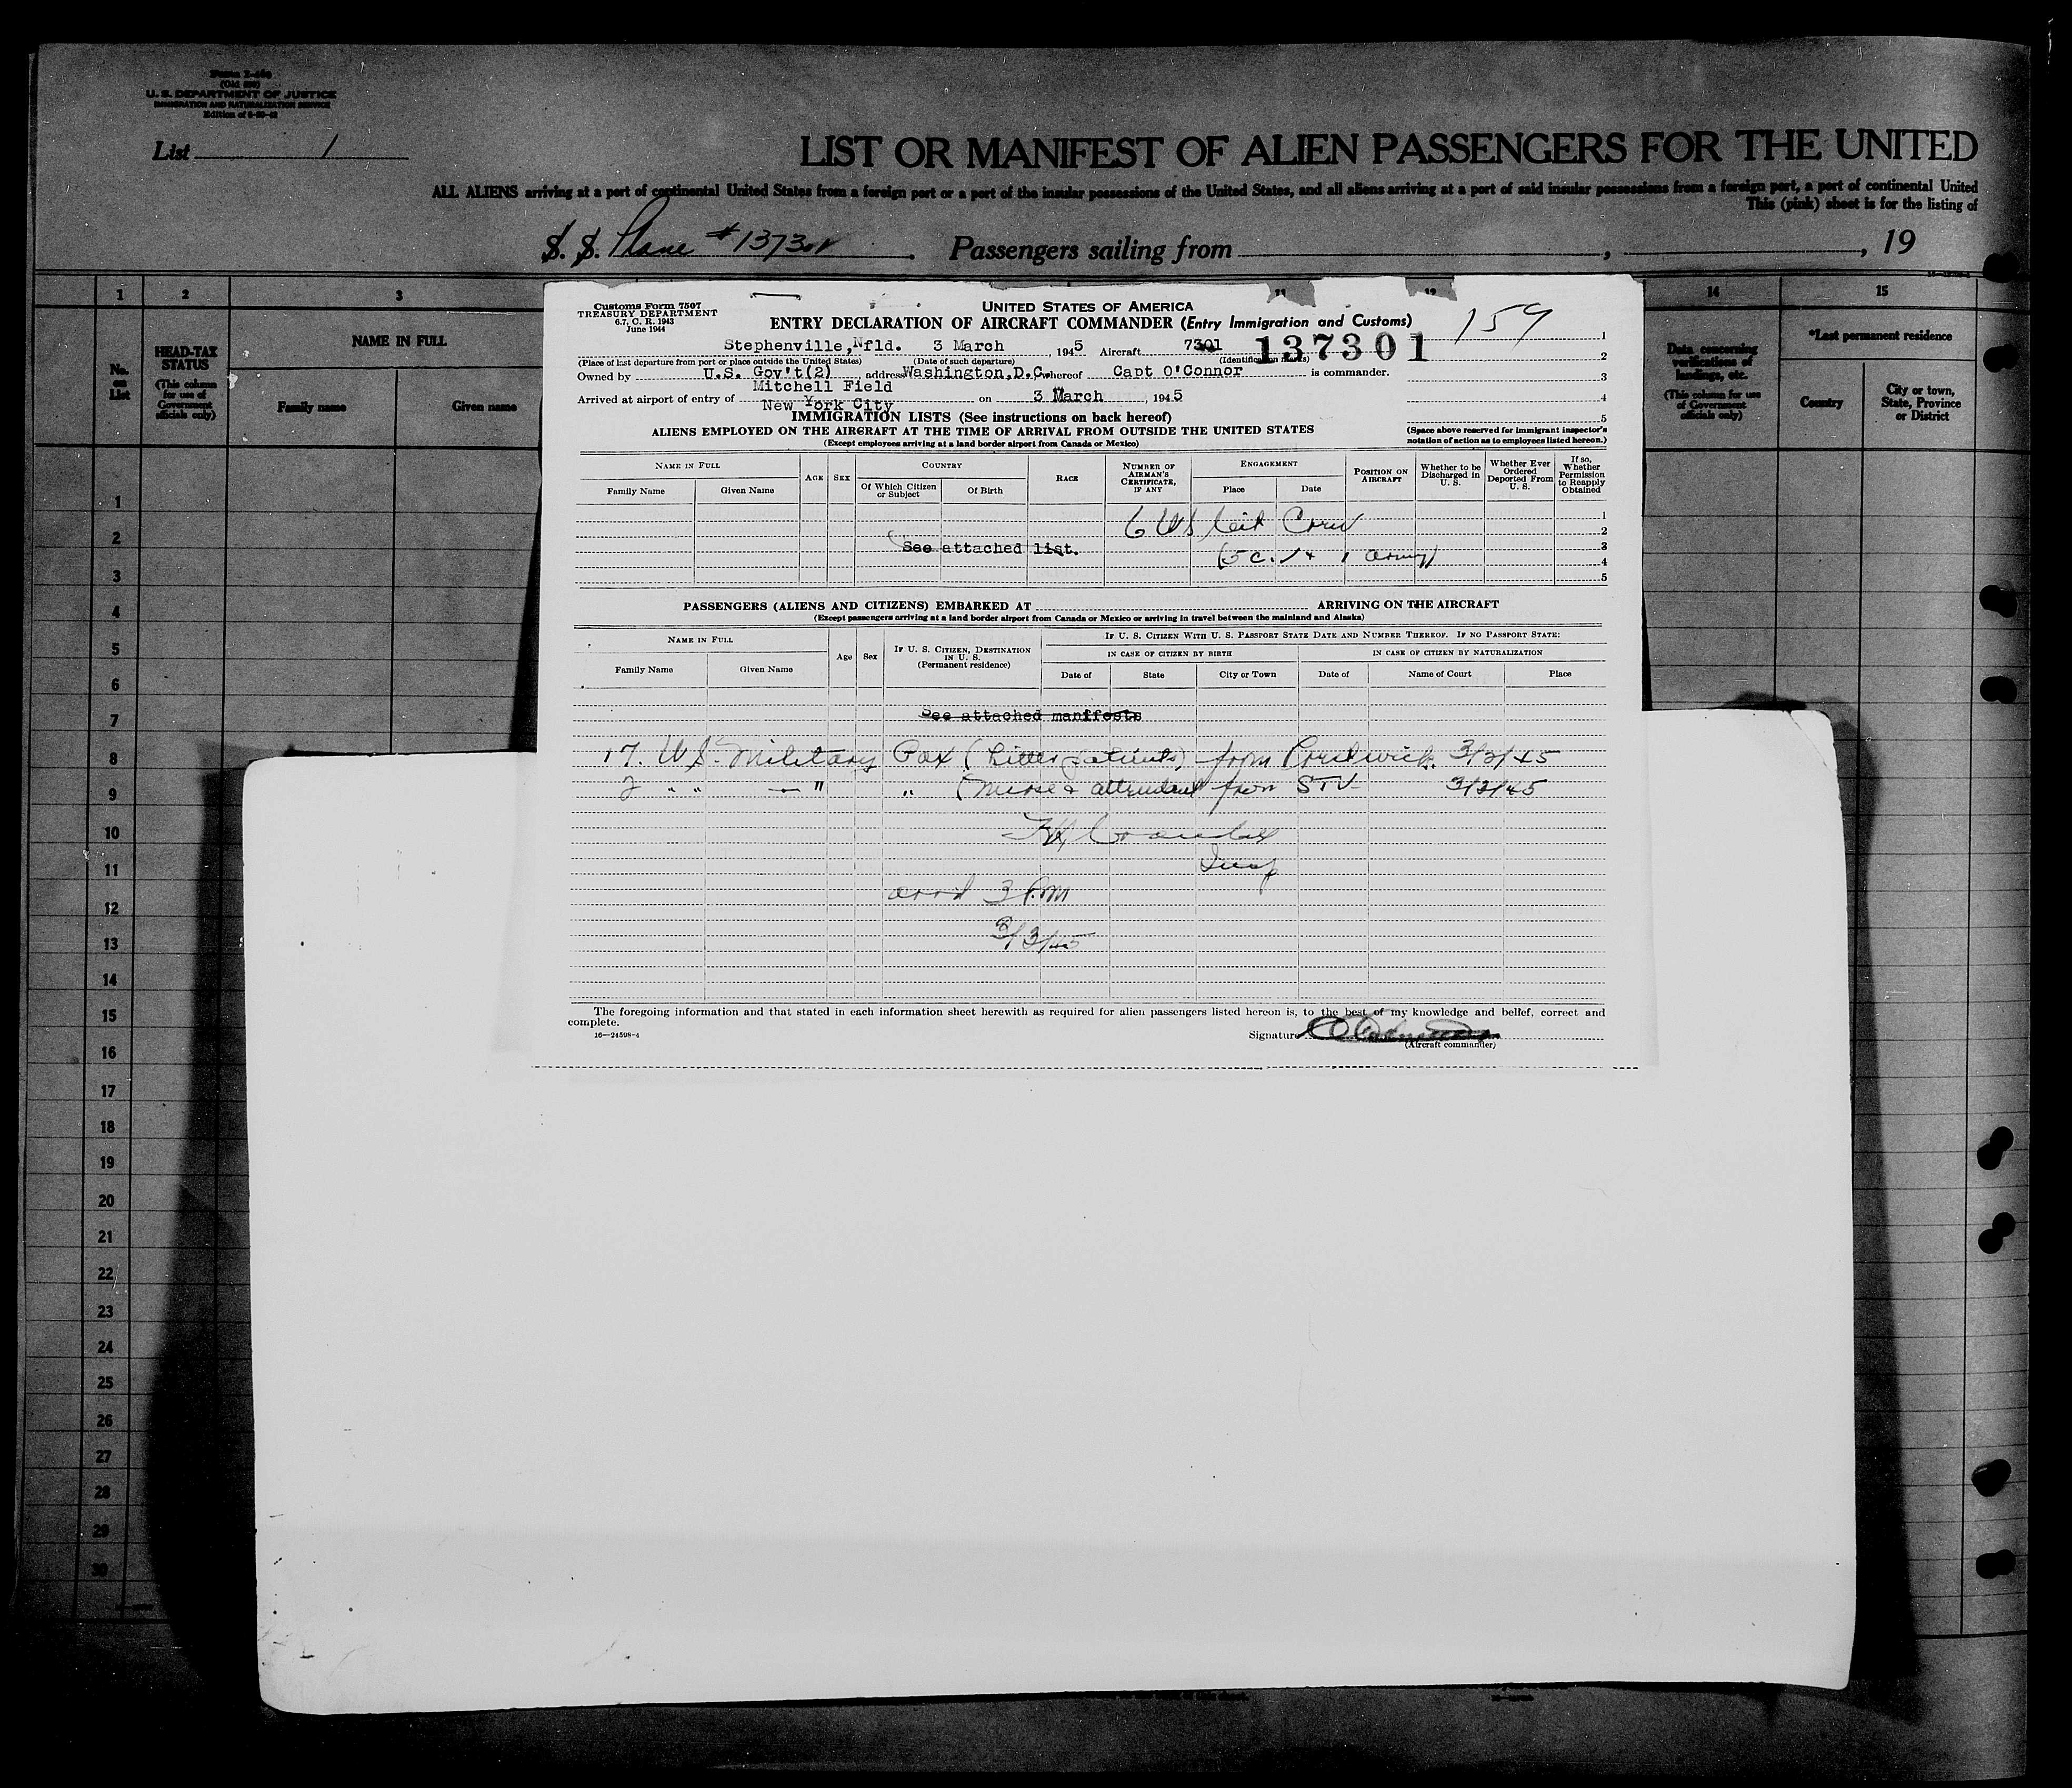 Form I-460
(Old 500)
U. S. DEPARTMENT OF JUSTICE
IMMIGRATION AND NATURALIZATION SERVICE
List 1
LIST OR MANIFEST OF ALIEN PASSENGERS FOR THE UNITED
ALL ALIENS arriving at a port of continental United States from a foreign port or a port of the insular possessions of the United States, and all aliens arriving at a port of said insular possessions from a foreign port, a port of continental United
This (pink) sheet is for the listing of
S. S. Plane # 137301. Passengers sailing from , , 19
1 2 3 11 12 14 15
No. on List
HEAD-TAX STATUS
(This column for use of Government officials only)
NAME IN FULL
Family name Given name
Data concerning verifications of landings, etc.
(This column for use of Government officials only)
*Last permanent residence
Country
City or town, State, Province or District
Customs Form 7507
TREASURY DEPARTMENT
6.7, C. R. 1943
June 1944
UNITED STATES OF AMERICA
ENTRY DECLARATION OF AIRCRAFT COMMANDER (Entry Immigration and Customs)
159
Stephenville, Nfld. 3 March, 1945 Aircraft 7301 137301
(Place of last departure from port or place outside the United States) (Date of such departure) (Identification marks)
Owned by U.S. Gov't(2), address Washington,D.C. whereof Capt O'Connor is commander.
Mitchell Field
Arrived at airport of entry of New York City on 3 March, 1945
IMMIGRATION LISTS (See instructions on back hereof)
ALIENS EMPLOYED ON THE AIRCRAFT AT THE TIME OF ARRIVAL FROM OUTSIDE THE UNITED STATES
(Except employees arriving at a land border airport from Canada or Mexico)
1
2
3
4
5
(Space above reserved for immigrant inspector's notation of action as to employees listed hereon.)
NAME IN FULL
Family Name Given Name
AGE SEX
COUNTRY
Of Which Citizen or Subject Of Birth
RACE
NUMBER OF AIRMAN'S CERTIFICATE, IF ANY
ENGAGEMENT
Place Date
POSITION ON AIRCRAFT
Whether to be Discharged in U. S.
Whether Ever Ordered Deported From U. S.
If so, Whether Permission to Reapply Obtained
6 US Cit Crew
See attached list.
(5 c. 1 + 1 army)
1
2
3
4
5
PASSENGERS (ALIENS AND CITIZENS) EMBARKED AT ARRIVING ON THE AIRCRAFT
(Except passengers arriving at a land border airport from Canada or Mexico or arriving in travel between the mainland and Alaska)
NAME IN FULL
Family Name Given Name
Age Sex
IF U. S. CITIZEN, DESTINATION IN U. S.
(Permanent residence)
IF U. S. CITIZEN WITH U. S. PASSPORT STATE DATE AND NUMBER THEREOF. IF NO PASSPORT STATE:
IN CASE OF CITIZEN BY BIRTH IN CASE OF CITIZEN BY NATURALIZATION
Date of State City or Town Date of Name of Court Place
See attached manifests
17. US. Military Pax (Litter patients) from Prestwick. 3/2/45
2 " " — " " (Nurse & attendant from STV 3/3/45
Insp
arrd 3 P.M
3/3/45
The foregoing information and that stated in each information sheet herewith as required for alien passengers listed hereon is, to the best of my knowledge and belief, correct and
complete.
16—24598-4
Signature
(Aircraft commander)
1
2
3
4
5
6
7
8
9
10
11
12
13
14
15
16
17
18
19
20
21
22
23
24
25
26
27
28
29
30